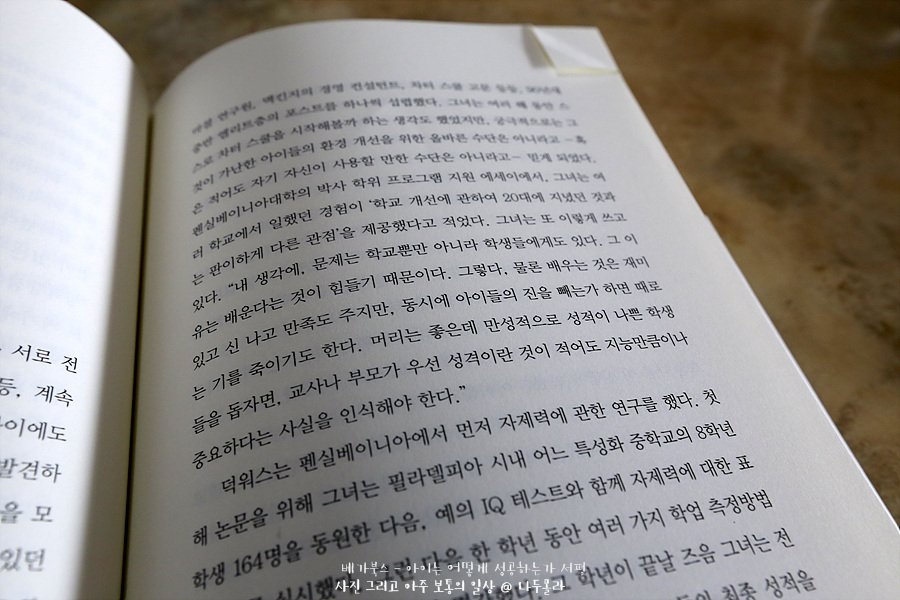 서로 전
등, 계속
아이에도
발견하
을 모
있던
마철 연구원, 맥킨지의 경영 컨설턴트, 차터 스쿨 고문 등등, 90년대
중반 엘리트층의 포스트를 하나씩 섭렵했다. 그녀는 여러 해 동안 스
스로 차터 스쿨을 시작해볼까 하는 생각도 했었지만, 궁극적으로는 그
것이 가난한 아이들의 환경 개선을 위한 올바른 수단은 아니라고 –혹
은 적어도 자기 자신이 사용할 만한 수단은 아니라고– 믿게 되었다.
펜실베이니아대학의 박사 학위 프로그램 지원 에세이에서, 그녀는 여
러 학교에서 일했던 경험이 '학교 개선에 관하여 20대에 지녔던 것과
는 판이하게 다른 관점'을 제공했다고 적었다. 그녀는 또 이렇게 쓰고
있다. “내 생각에, 문제는 학교뿐만 아니라 학생들에게도 있다. 그 이
유는 배운다는 것이 힘들기 때문이다. 그렇다, 물론 배우는 것은 재미
있고 신 나고 만족도 주지만, 동시에 아이들의 진을 빼는가 하면 때로
는 기를 죽이기도 한다. 머리는 좋은데 만성적으로 성적이 나쁜 학생
들을 돕자면, 교사나 부모가 우선 성격이란 것이 적어도 지능만큼이나
중요하다는 사실을 인식해야 한다.”
덕워스는 펜실베이니아에서 먼저 자제력에 관한 연구를 했다. 첫
해 논문을 위해 그녀는 필라델피아 시내 어느 특성화 중학교의 8학년
학생 164명을 동원한 다음, 예의 IQ 테스트와 함께 자제력에 대한 표
실시했 다음 한 학년 동안 여러 가지 학업 측정방법
학년이 끝날 즈음 그녀는 전
최종 성적을
베가북스 - 아이는 어떻게 성공하는가 서평
사진 그리고 아주 보통의 일상 @ 나두몰라